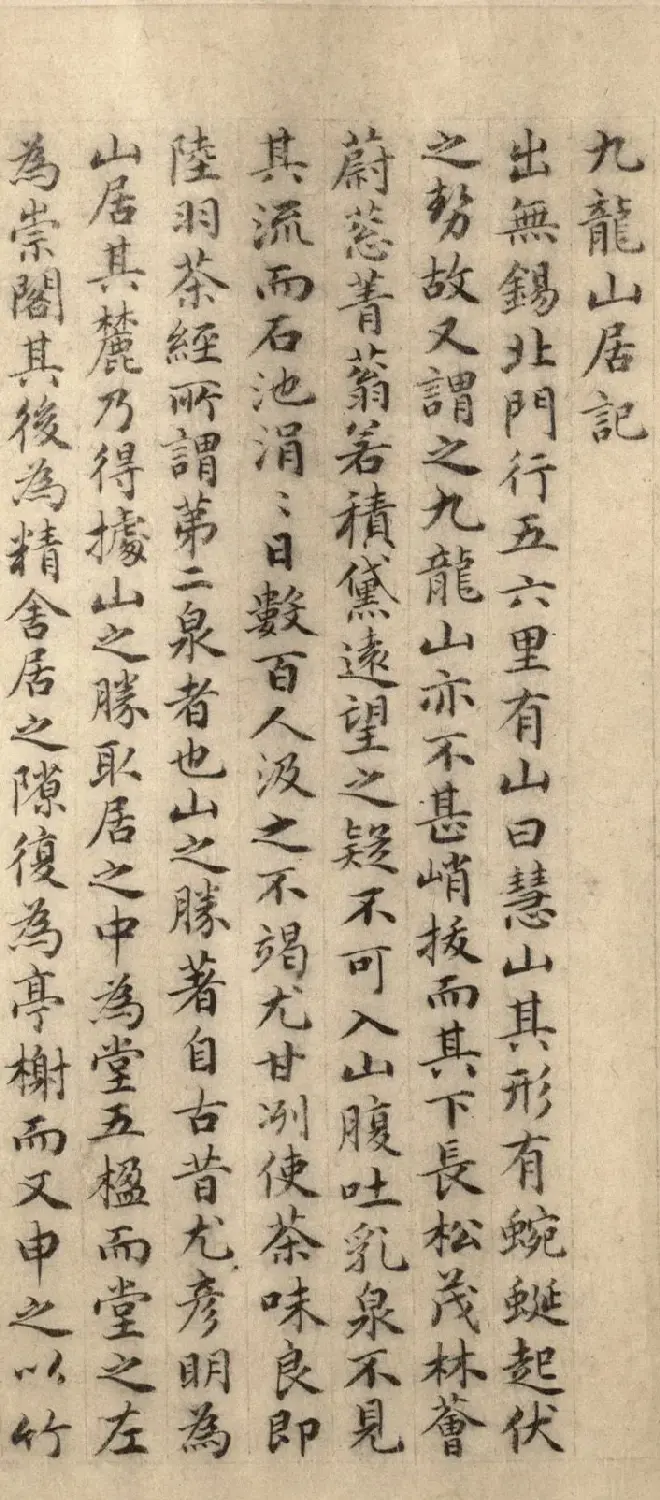 九龍山居記
出無錫北門行五六里有山曰慧山其形有蜿蜒起伏
之勢故又謂之九龍山亦不甚峭拔而其下長松茂林薈
蔚蔥菁蓊若積黛遠望之疑不可入山腹吐乳泉不見
其流而石池涓〻日數百人汲之不竭尤甘冽使茶味良即
陸羽茶經所謂第二泉者也山之勝著自古昔尤彥明為
山居其麓乃得據山之勝取居之中為堂五楹而堂之左
為崇閣其後為精舍居之隙復為亭榭而又申之以竹